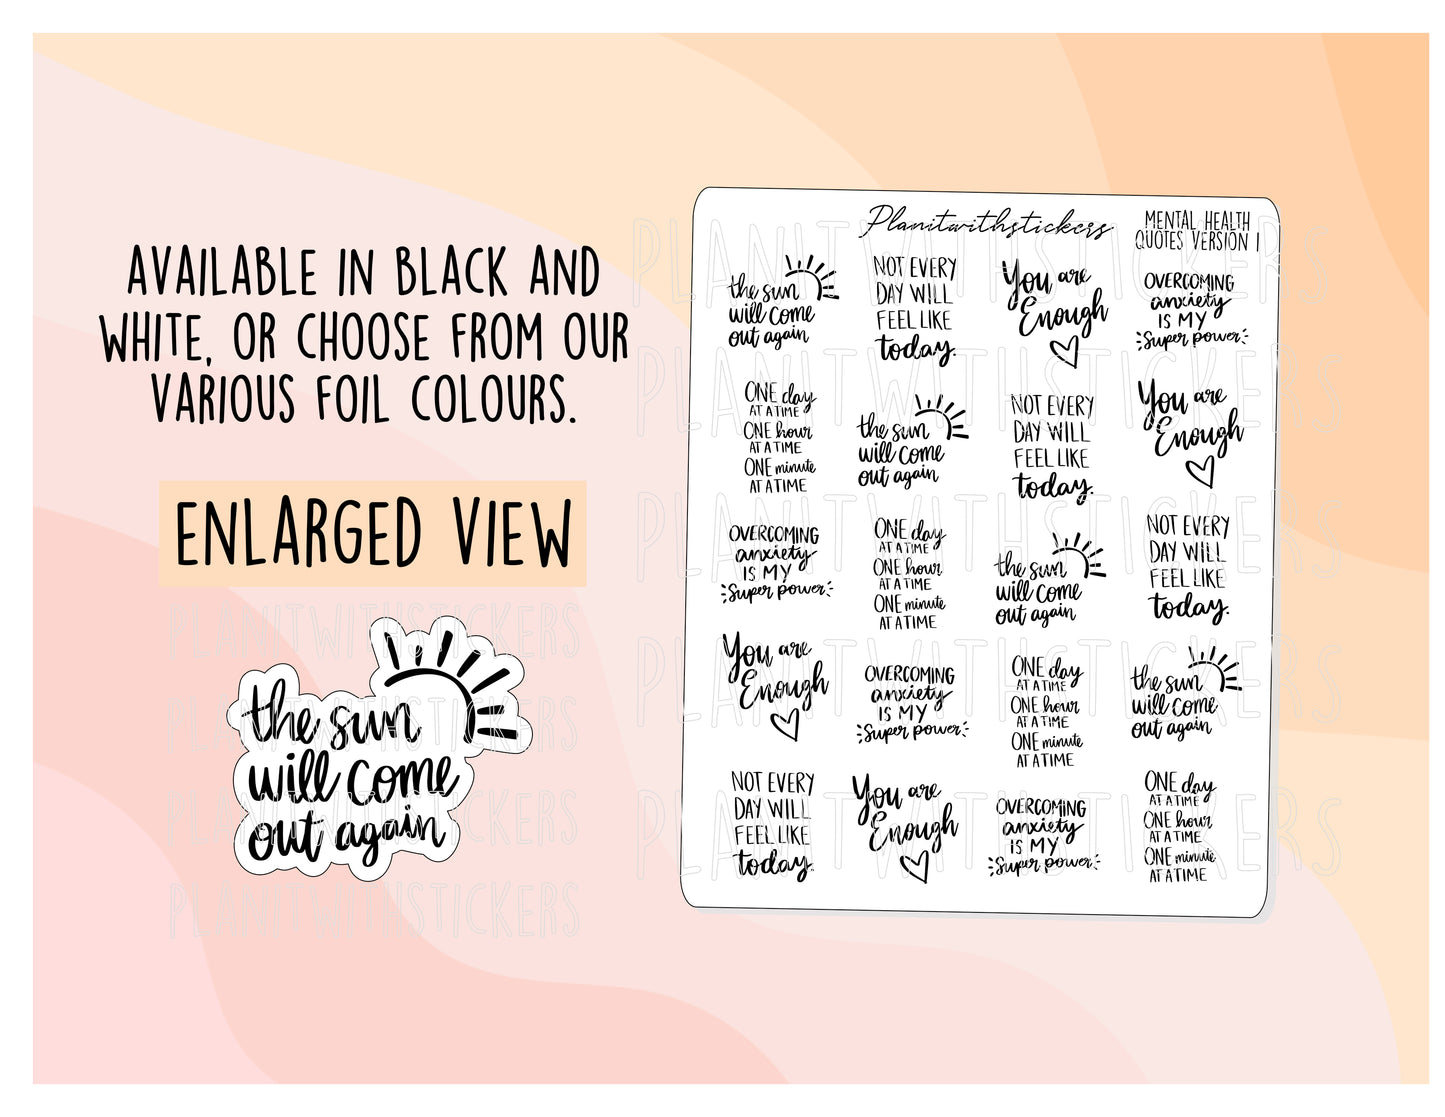 AVAILABLE IN BLACK AND
WHITE, OR CHOOSE FROM OUR
VARIOUS FOIL COLOURS.
ENLARGED VIEW
PLANITWITHSTICKERS
PLANITWITHSTICKERS
PLANITWITHSTICKERS
PLANITWITHSTICKERS
the sun
will come
out again
Planitwithstickers
MENTAL HEALTH
QUOTES VERSION 1
PLANITWITHSTICKERS
PLANITWITHSTICKERS
PLANITWITHSTICKERS
PLANITWITHSTICKERS
PLANITWITHSTICKERS
the sun
will come
out again
NOT EVERY
DAY WILL
FEEL LIKE
today.
You are
Enough
OVERCOMING
anxiety
IS MY
Super power
ONE day
AT A TIME
ONE hour
AT A TIME
ONE minute
AT A TIME
the sun
will come
out again
NOT EVERY
DAY WILL
FEEL LIKE
today.
You are
Enough
OVERCOMING
anxiety
IS MY
Super power
ONE day
AT A TIME
ONE hour
AT A TIME
ONE minute
AT A TIME
the sun
will come
out again
NOT EVERY
DAY WILL
FEEL LIKE
today.
You are
Enough
OVERCOMING
anxiety
IS MY
Super power
ONE day
AT A TIME
ONE hour
AT A TIME
ONE minute
AT A TIME
the sun
will come
out again
NOT EVERY
DAY WILL
FEEL LIKE
today.
You are
Enough
OVERCOMING
anxiety
IS MY
Super power
ONE day
AT A TIME
ONE hour
AT A TIME
ONE minute
AT A TIME